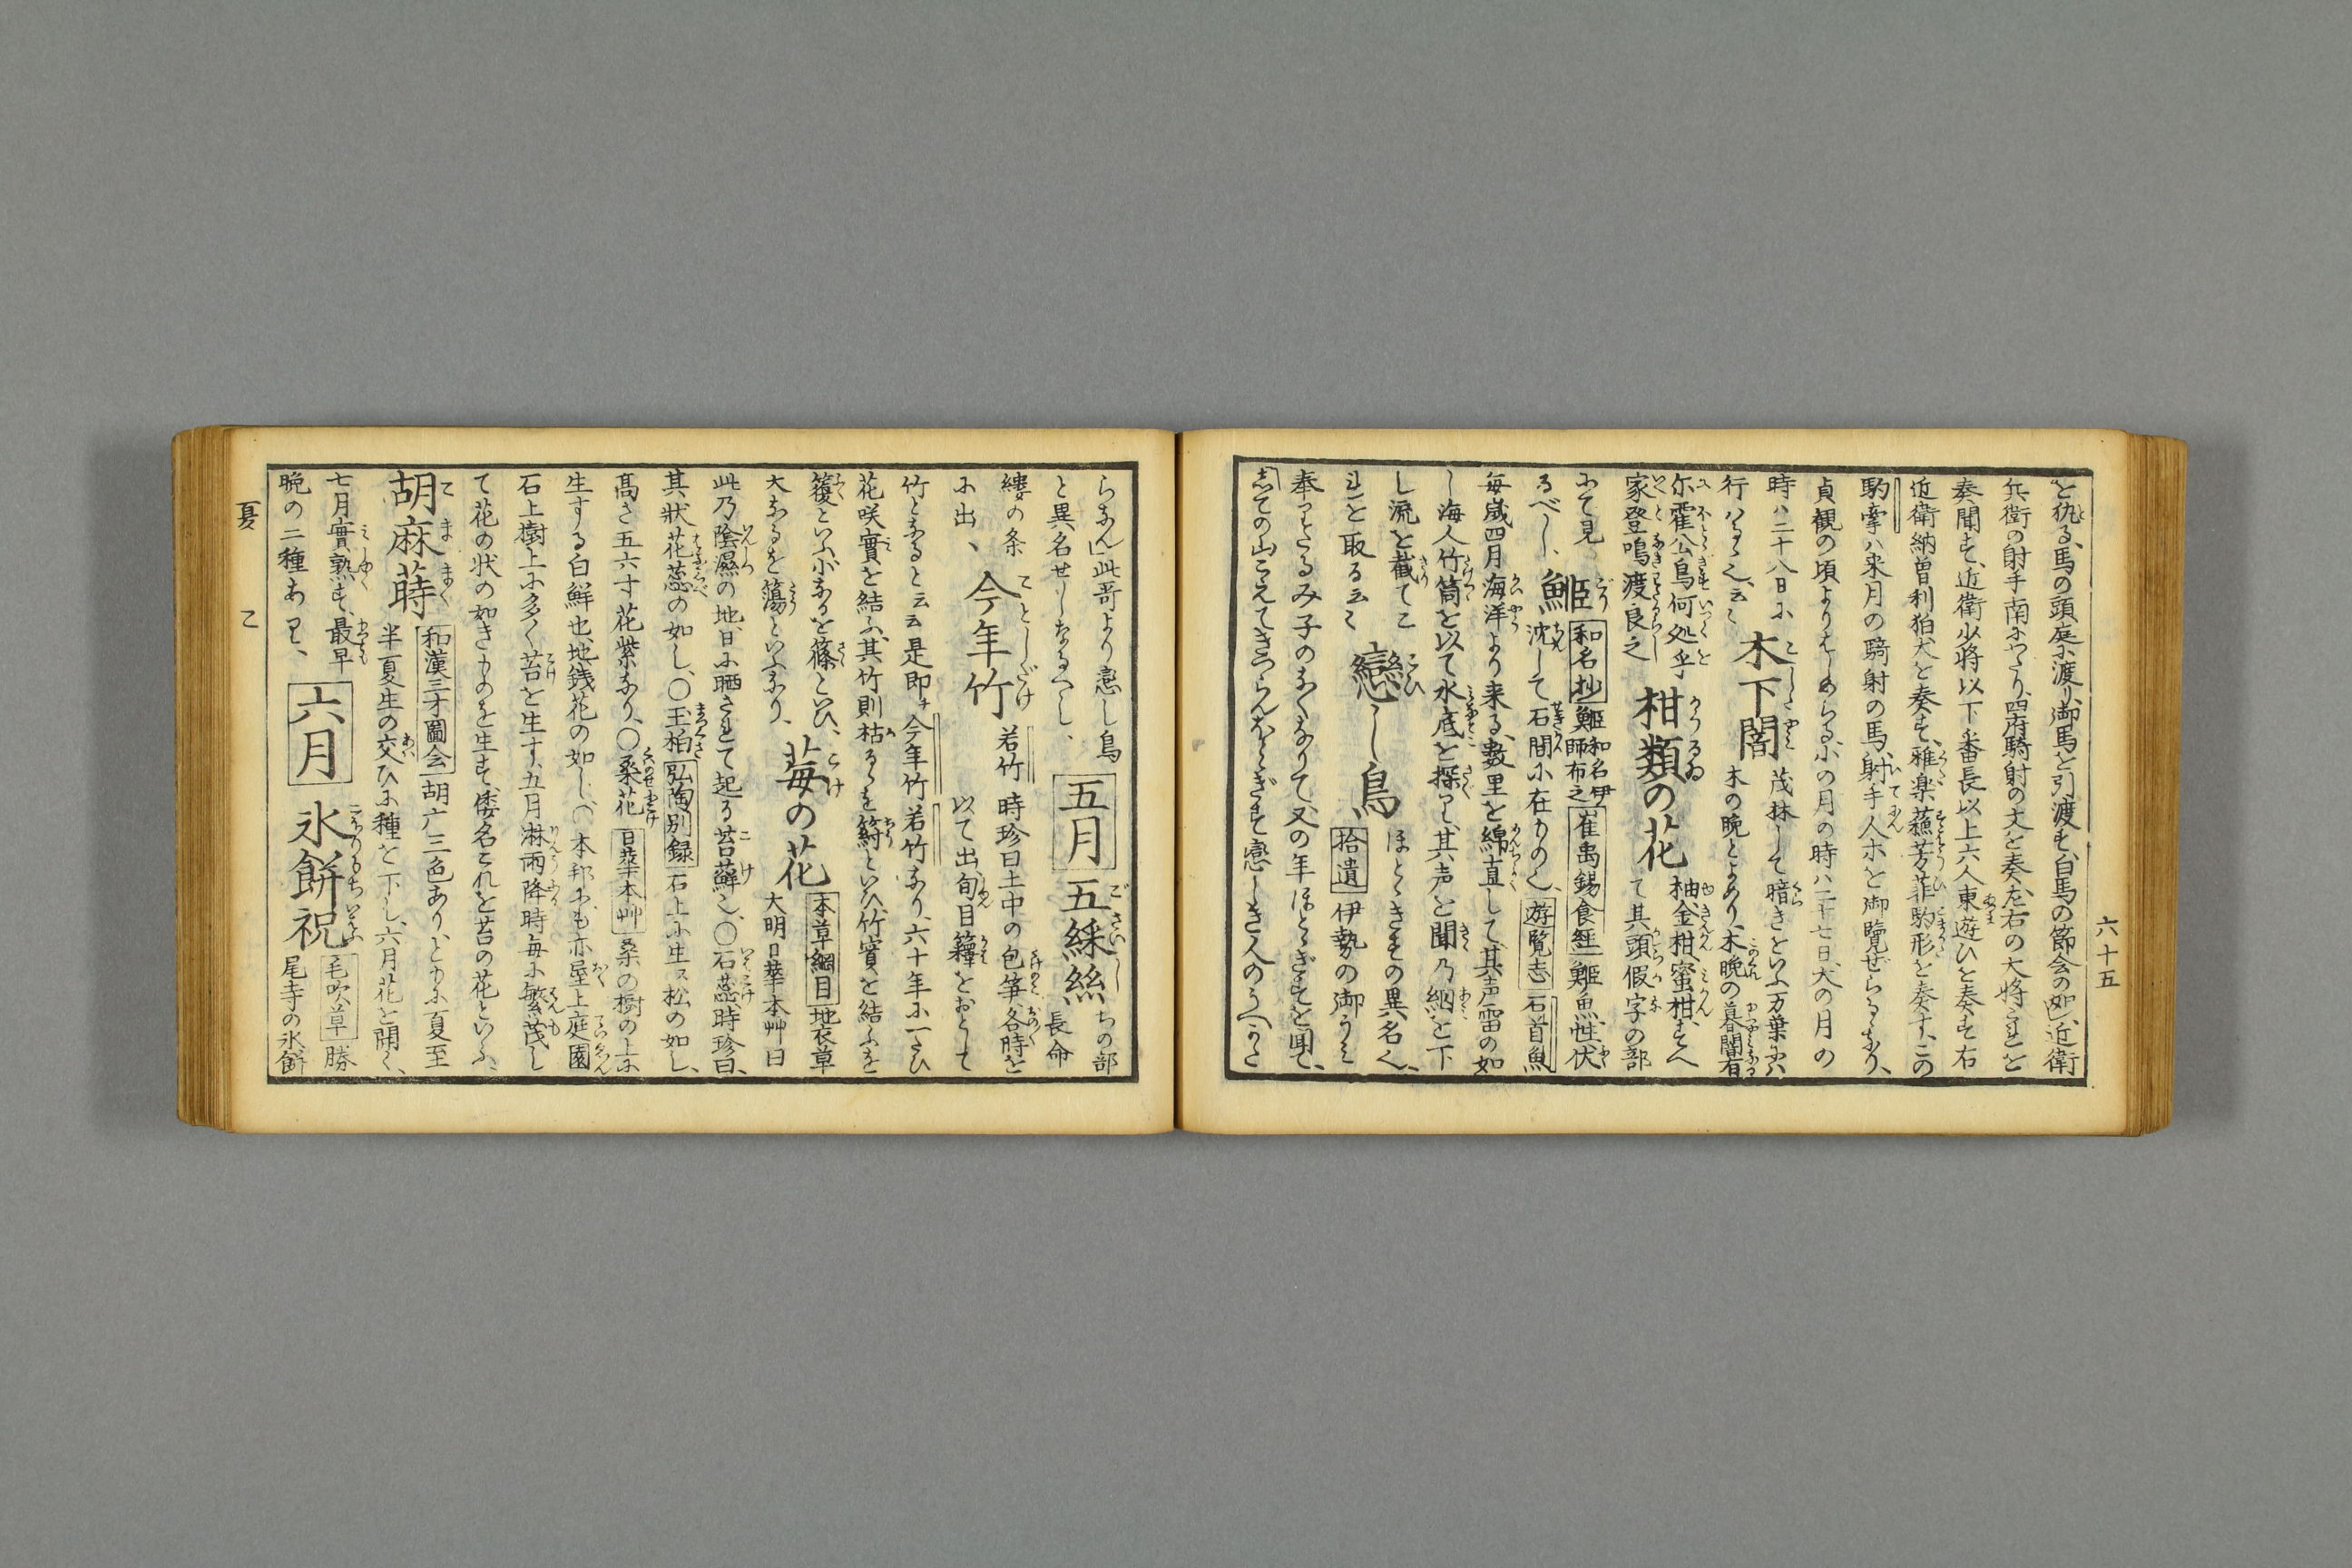 六十五
を仇る、馬の頭庭に渡り、御馬を引渡す、白馬の節会の如し、近衛
兵衛の射手南にわたり、四府騎射の文を奏、左右の大将これを
奏聞す、近衛少将以下番長以上六人東遊ひを奏す右
近衛納曽利狛犬を奏す、雅楽蘓芳菲駒形を奏す、この
駒牽ハ来月の騎射の馬、射手人ホを御覧ぜらるゝなり、
貞観の頃よりはしめらる、小の月の時ハ二十七日、大の月の
時ハ二十八日に
行はるゝ也、云々
木下闇
茂林して暗きをいふ万葉にハ
木の晩とよめり、木晩の暮闇有
尓霍公鳥何処乎
家登鳴渡良之
柑類の花
柚、金柑、蜜柑、すへ
て其頭假字の部
にて見
るべし、
鮔
和名抄
鰸和名伊
師布之
崔禹錫食経
鰸魚性伏
沈して石間に在ものく、
遊覧志
石首魚
毎歳四月海洋より来る、数里を綿亘して、其声雷の如
し海人竹筒を以て水底を探り、其声を聞乃網を下
し流を截てこ
れを取る云々
戀し鳥
ほとゝきすの異名く、
拾遺
伊勢の御うミ
奉りたるみ子のなくなりて又の年ほとゝぎすを聞て、
「志ての山こえてきつらんほとゝぎす戀しき人のうへかた
らなん」此哥より戀し鳥
と異名せしなるへし、
五月
五綵絲
ちの部
長命
縷の条
に出、
今年竹
若竹
時珍曰土中の包筍各時を
以て出旬日籜をおとして
竹となると云云是即チ今年竹若竹なり、六十年に一たひ
花咲實を結ふ、其竹則枯るゝを䈙といひ、竹實を結ふを
䈏といふ小なるを篠といひ、
大なるを簜といふなり、
苺の花
本草綱目
地衣草
大明日華本艸曰
此乃陰濕の地、日に晒されて起る苔蘚也、〇石蕊時珍曰、
其状花蕊の如し、〇玉柏
弘陶別録
石上に生ス松の如し、
高さ五六寸花紫なり、〇桑花
日華本艸
桑の樹の上に
生する白鮮也、地銭花の如し〇本邦にも亦屋上庭園
石上樹上に多く苔を生す、五月淋雨降時毎に繁茂し
て花の状の如きものを生す、倭名これを苔の花といふ、
胡麻蒔
和漢三才圖会
胡广三色あり、ともに夏至
半夏生の交ひに種を下し、六月花を開く、
七月實熟す、最早
晩の二種あり、
六月
氷餅祝
毛吹草
勝
尾寺の氷餅
夏
こ